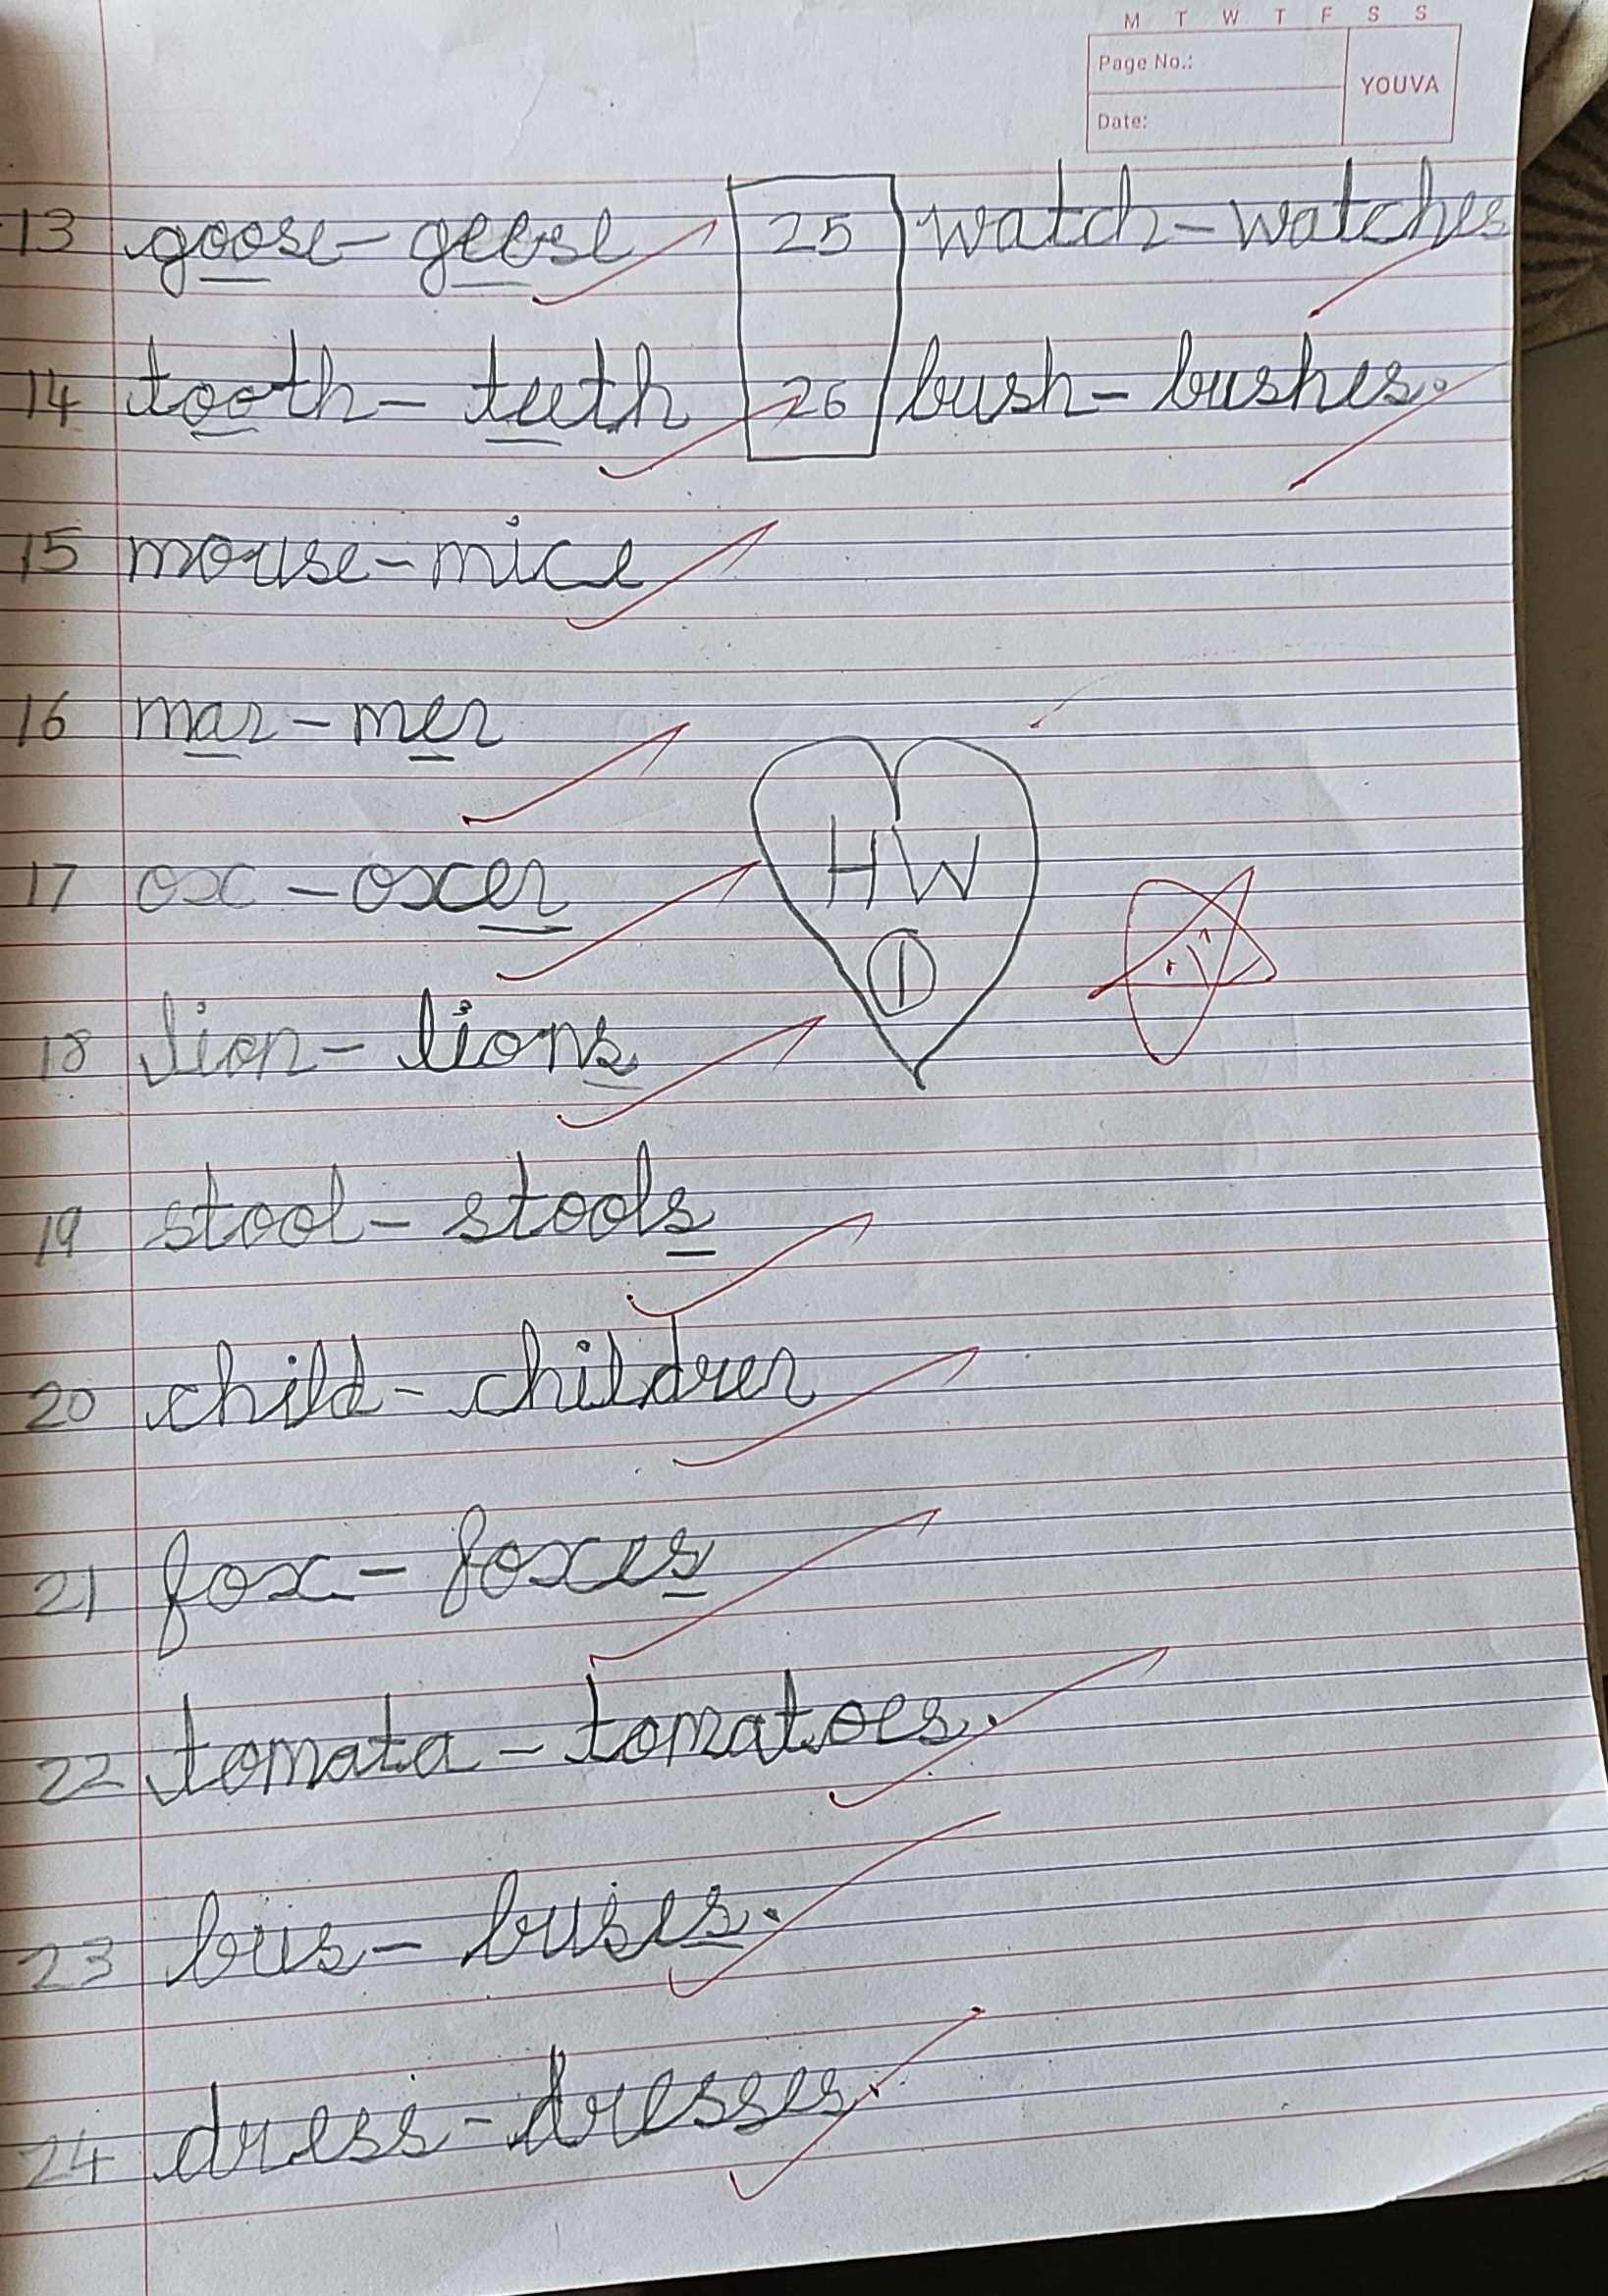 M T W T F S S
Page No.:
YOUVA
Date:
13 goose - geese
25 watch - watches
14 tooth - teeth
26 bush - bushes.
15 mouse - mice
16 man - men
17 ox - oxen
HW
1
18 lion - lions
19 stool - stools
20 child - children
21 fox - foxes
22 tomata - tomatoes.
23 bus - buses.
24 dress - dresses.